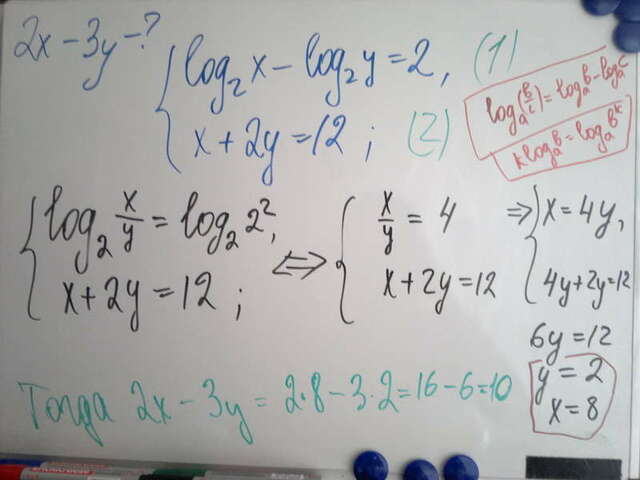 2x − 3y − ?
{ log₂x − log₂y = 2, (1)
x + 2y = 12 ; (2)
logₐ(b/c) = logₐb − logₐc
k logₐb = logₐbᵏ
{ log₂ x/y = log₂ 2², ⇔ { x/y = 4 ⇒ { x = 4y,
x + 2y = 12 ; x + 2y = 12 4y + 2y = 12
6y = 12
y = 2
x = 8
Тогда 2x − 3y = 2·8 − 3·2 = 16 − 6 = 10